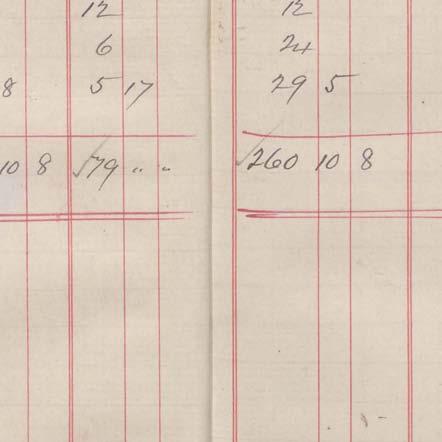 12 12
6 24
8 5 17 29 5
10 8 79 " " 260 10 8